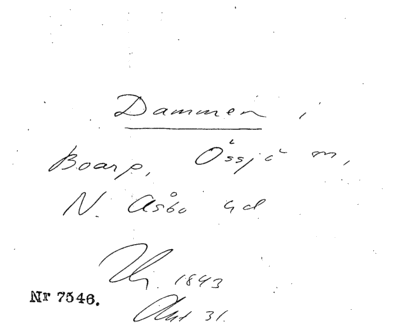 Dammen i
Boarp, Össjö sn,
N. Åsbo hd
1843
Nr 7546.
Akt 31.